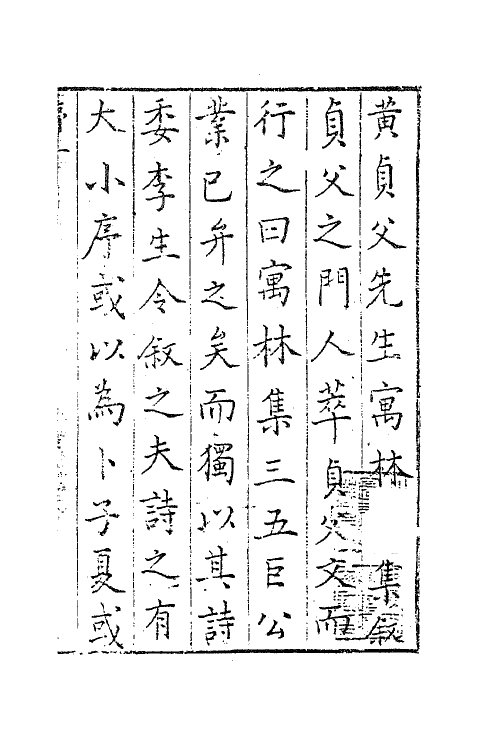 黄貞父先生寓林集叙
貞父之門人萃貞父文而
行之曰寓林集三五巨公
業已弁之矣而獨以其詩
委李生令叙之夫詩之有
大小序或以為卜子夏或